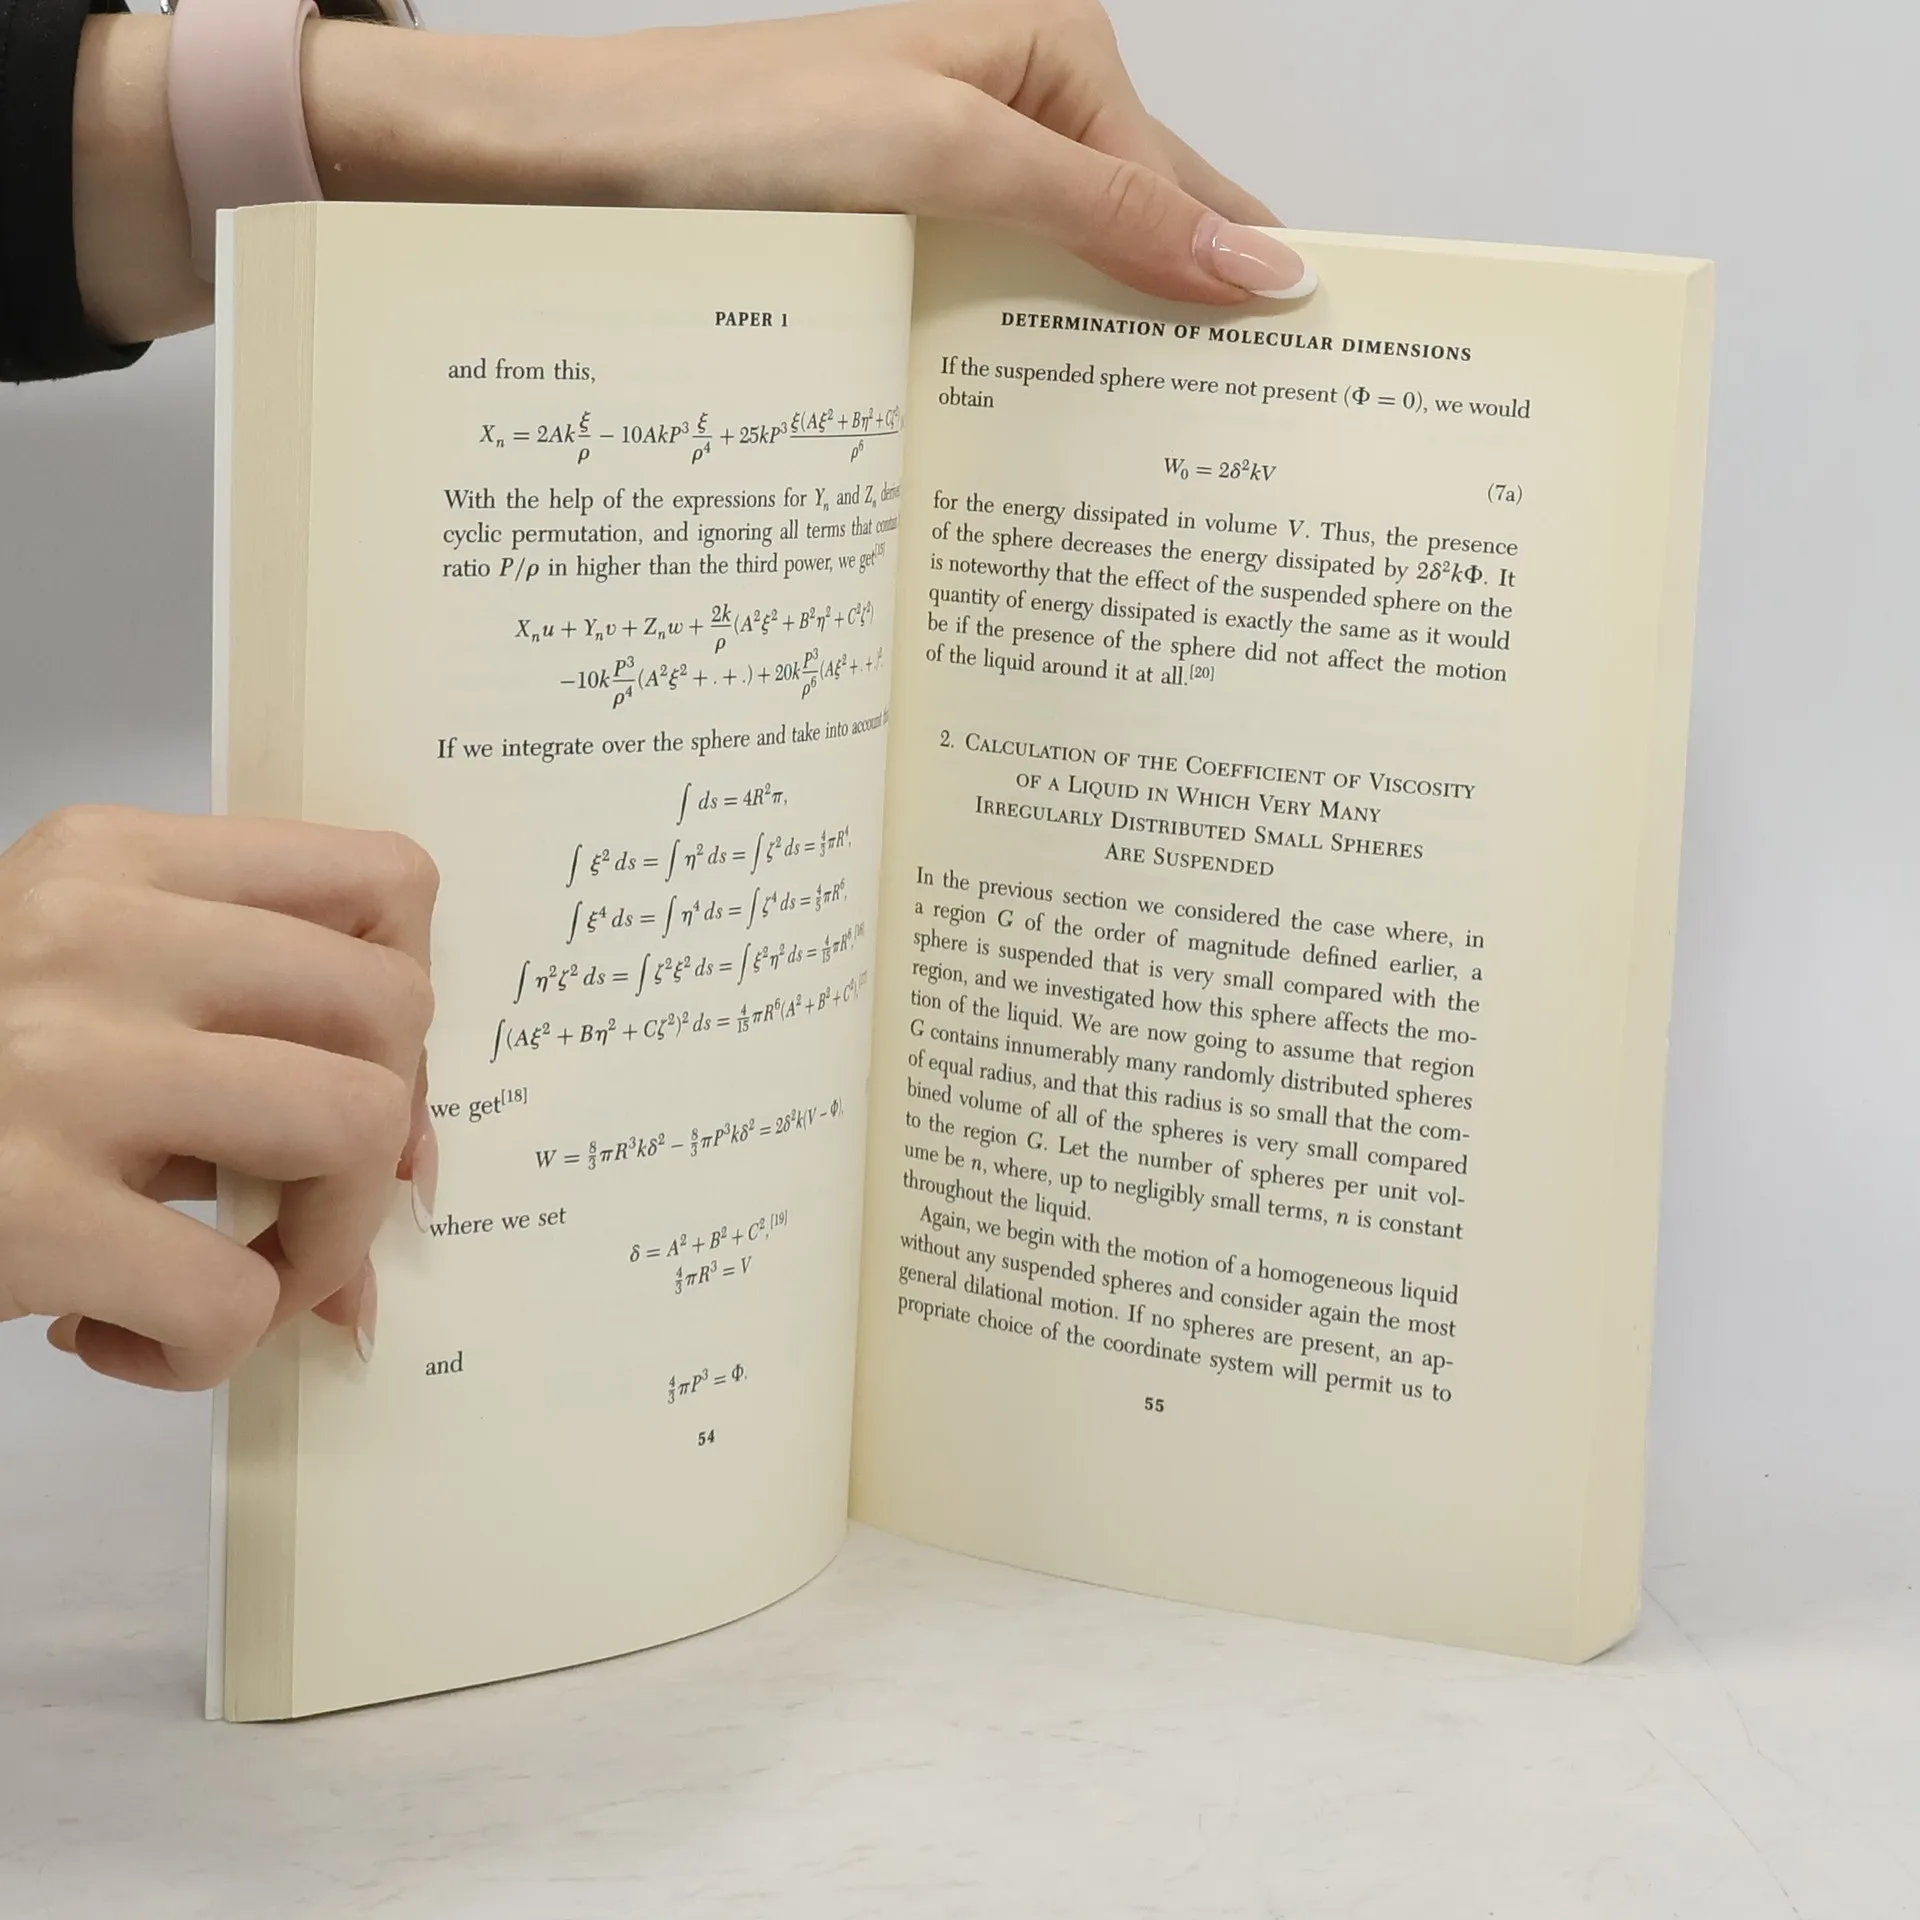 PAPER 1
and from this,
Xₙ = 2Ak ξ/ρ − 10AkP³ ξ/ρ⁴ + 25kP³ ξ(Aξ² + Bη² + Cζ²)/ρ⁶
With the help of the expressions for Yₙ and Zₙ
cyclic permutation, and ignoring all terms that
ratio P/ρ in higher than the third power, we get[15]
Xₙu + Yₙv + Zₙw + 2k/ρ (A²ξ² + B²η² + C²ζ²)
−10k P³/ρ⁴ (A²ξ² + . + .) + 20k P³/ρ⁶ (Aξ² + . + .)²
If we integrate over the sphere and take into account
∫ ds = 4R²π,
∫ ξ² ds = ∫ η² ds = ∫ ζ² ds = 4/3 πR⁴,
∫ ξ⁴ ds = ∫ η⁴ ds = ∫ ζ⁴ ds = 4/5 πR⁶,
∫ η²ζ² ds = ∫ ζ²ξ² ds = ∫ ξ²η² ds = 4/15 πR⁶,[16]
∫ (Aξ² + Bη² + Cζ²)² ds = 4/15 πR⁶(A² + B² + C²),[17]
we get[18]
W = 8/3 πR³kδ² − 8/3 πP³kδ² = 2δ²k(V − Φ),
where we set
δ = A² + B² + C²,[19]
4/3 πR³ = V
and
4/3 πP³ = Φ.
54
DETERMINATION OF MOLECULAR DIMENSIONS
If the suspended sphere were not present (Φ = 0), we would
obtain
W₀ = 2δ²kV
(7a)
for the energy dissipated in volume V. Thus, the presence
of the sphere decreases the energy dissipated by 2δ²kΦ. It
is noteworthy that the effect of the suspended sphere on the
quantity of energy dissipated is exactly the same as it would
be if the presence of the sphere did not affect the motion
of the liquid around it at all.[20]
2. CALCULATION OF THE COEFFICIENT OF VISCOSITY
OF A LIQUID IN WHICH VERY MANY
IRREGULARLY DISTRIBUTED SMALL SPHERES
ARE SUSPENDED
In the previous section we considered the case where, in
a region G of the order of magnitude defined earlier, a
sphere is suspended that is very small compared with the
region, and we investigated how this sphere affects the mo-
tion of the liquid. We are now going to assume that region
G contains innumerably many randomly distributed spheres
of equal radius, and that this radius is so small that the com-
bined volume of all of the spheres is very small compared
to the region G. Let the number of spheres per unit vol-
ume be n, where, up to negligibly small terms, n is constant
throughout the liquid.
Again, we begin with the motion of a homogeneous liquid
without any suspended spheres and consider again the most
general dilational motion. If no spheres are present, an ap-
propriate choice of the coordinate system will permit us to
55